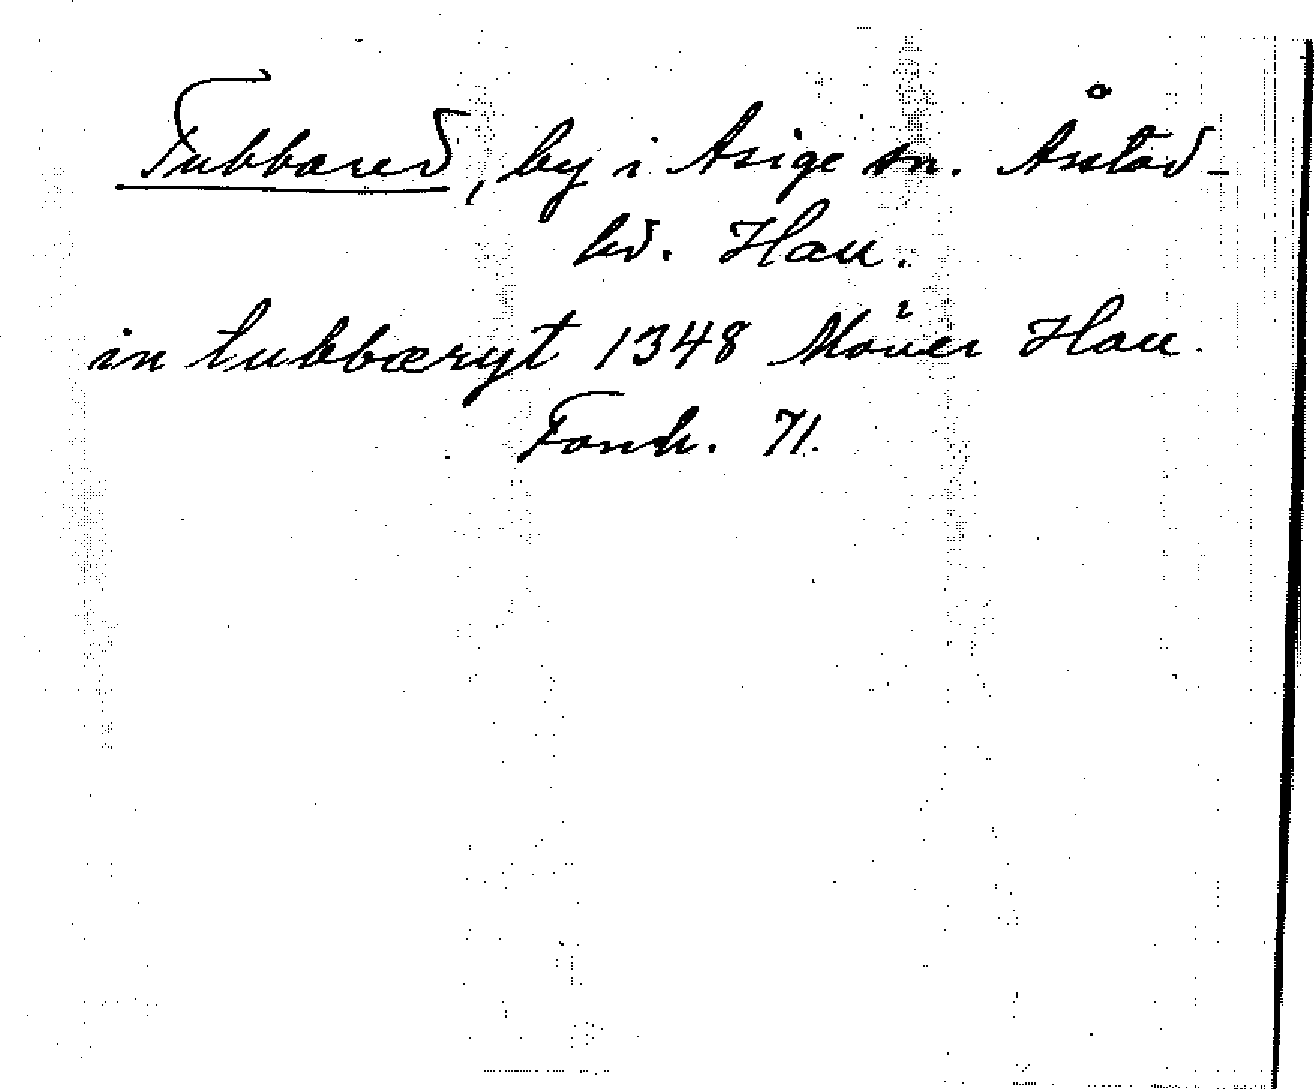 Tubbared, by i Asige sn. Årstad-
hd. Hall.
in tubbæryt 1348 Möller Hall.
Forsk. 71.